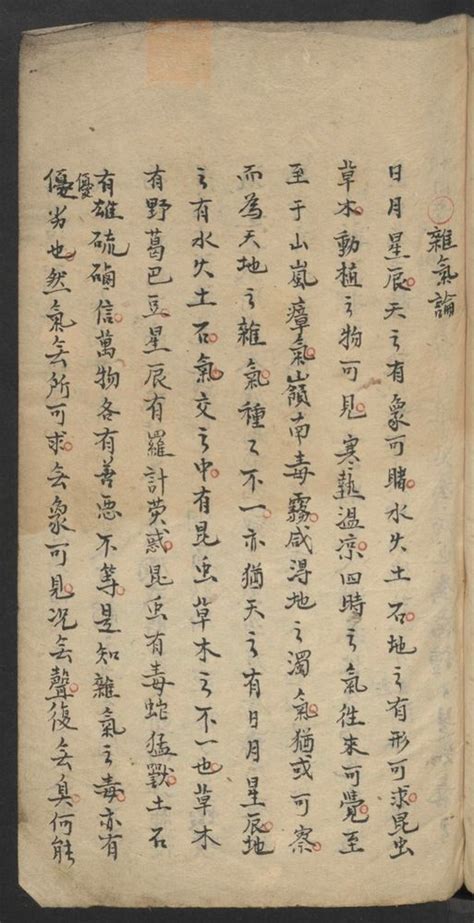 雜氣論
日月星辰天之有象可睹水火土石地之有形可求昆虫
草木動植之物可見寒熱温凉四時之氣徃來可覺至
至于山嵐瘴氣嶺南毒霧咸淂地之濁氣猶或可察
而為天地之雜氣種〻不一亦猶天之有日月星辰地
之有水火土石氣交之中有昆虫草木之不一也草木
有野葛巴豆星辰有羅計荧惑昆虫有毒蛇猛獸土石
有雄硫硇信萬物各有善悪不等是知雜氣之毒亦有
優
優劣也然氣無所可求無象可見况無聲復無臭何能